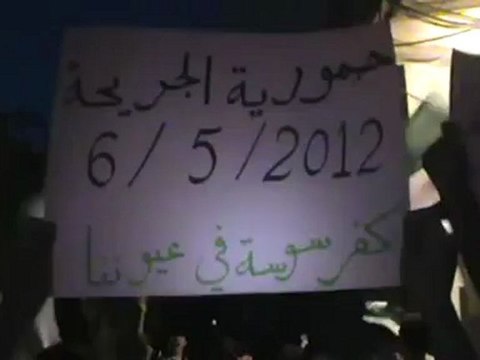 حمورية الجريحة
6/5/2012
كفرسوسة في عيوننا